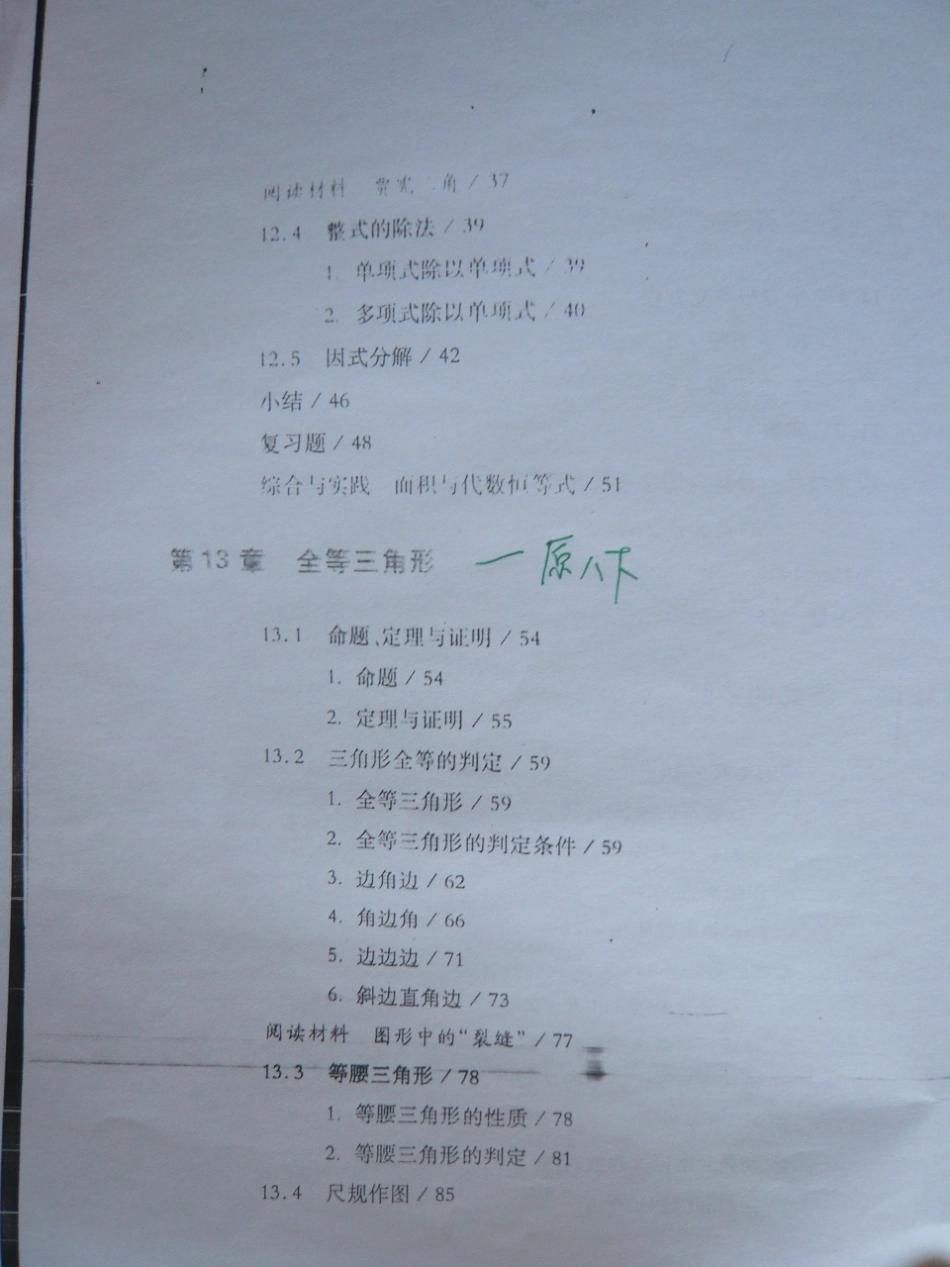 阅读材料 贾宪三角 / 37
12.4 整式的除法 / 39
1. 单项式除以单项式 / 39
2. 多项式除以单项式 / 40
12.5 因式分解 / 42
小结 / 46
复习题 / 48
综合与实践 面积与代数恒等式 / 51
第 13 章 全等三角形 一原八下
13.1 命题、定理与证明 / 54
1. 命题 / 54
2. 定理与证明 / 55
13.2 三角形全等的判定 / 59
1. 全等三角形 / 59
2. 全等三角形的判定条件 / 59
3. 边角边 / 62
4. 角边角 / 66
5. 边边边 / 71
6. 斜边直角边 / 73
阅读材料 图形中的“裂缝” / 77
13.3 等腰三角形 / 78
1. 等腰三角形的性质 / 78
2. 等腰三角形的判定 / 81
13.4 尺规作图 / 85